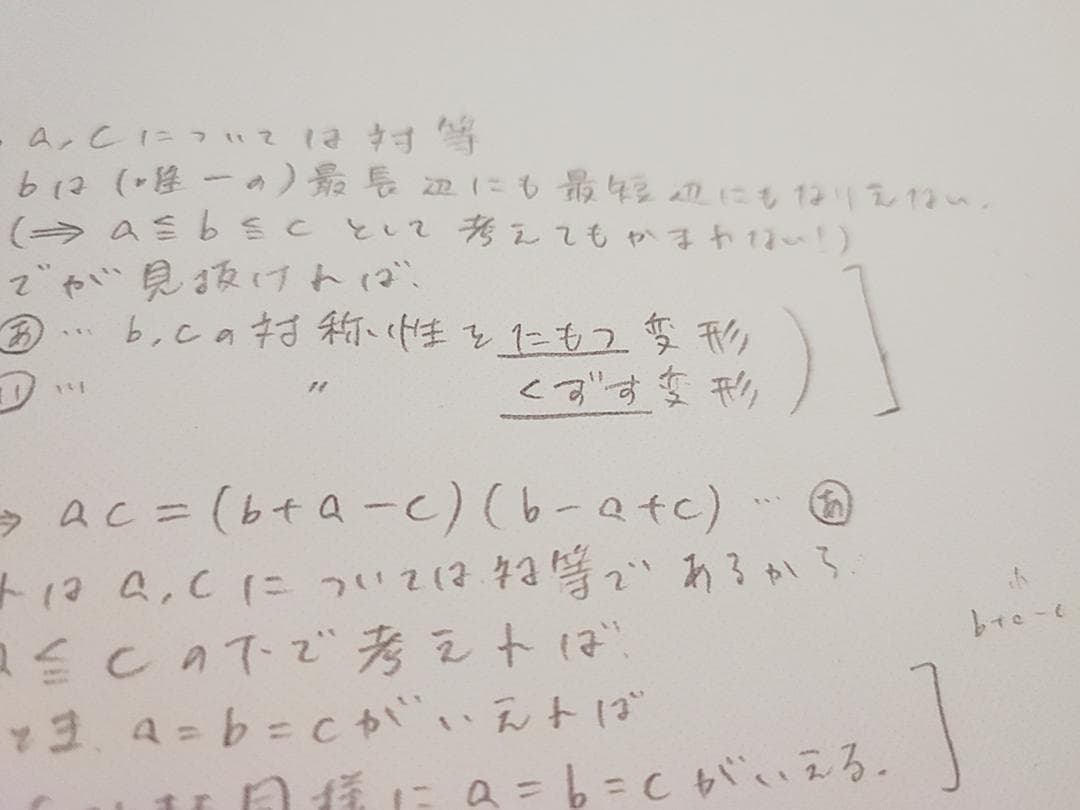 a, cについては対等
bは(唯一の)最長辺にも最短辺にもなりえない.
(⇒ a≦b≦cとして考えてもかまわない!)
でが見抜ければ.
あ … b, cの対称性をにもつ変形
い … 〃 くずす変形
⇒ ac=(b+a-c)(b-a+c) … あ
はa, cについては対等であるから.
≦cの下で考えれば.
a=b=cがいえれば
同様にa=b=cがいえる.